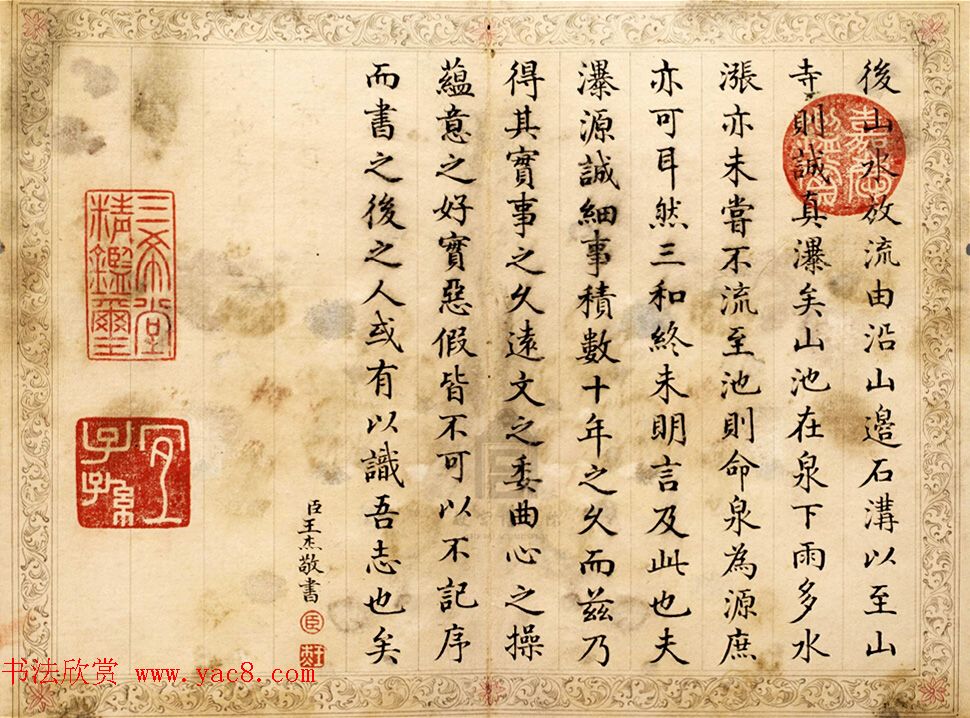 後山水放流由沿山邉石溝以至山
寺則誠真瀑矣山池在泉下雨多水
漲亦未嘗不流至池則命泉為源庶
亦可耳然三和終未明言及此也夫
瀑源誠細事積數十年之久而茲乃
得其實事之久遠文之委曲心之操
蘊意之好實惡假皆不可以不記序
而書之後之人或有以識吾志也矣
臣王杰敬書
臣
嘉慶鑑賞
三希堂
精鑑璽
宜
子孫
书法欣赏 www.yac8.com